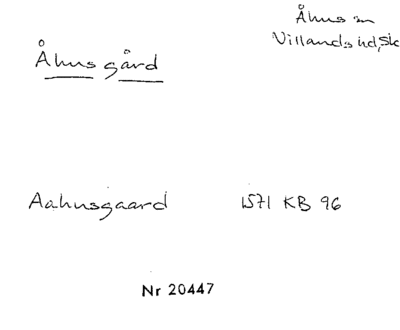 Åhus sn
Villands hd, Sk
Åhus gård
Aahusgaard 1571 KB 96
Nr 20447